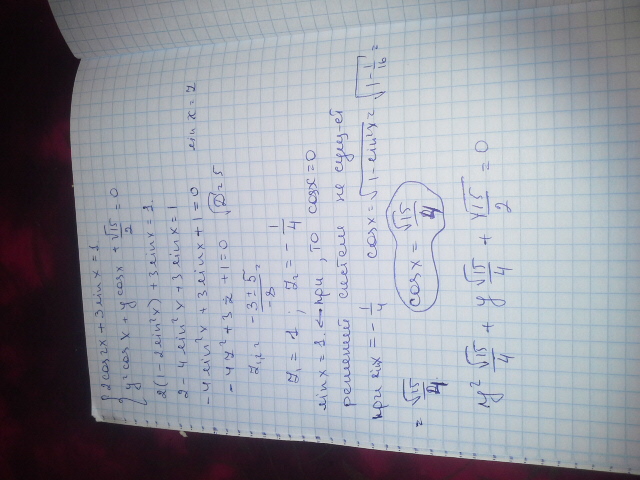 { 2cos2x + 3sinx = 1
y² cosx + y cosx + √15/2 = 0
2(1 - 2sin²x) + 3sinx = 1
2 - 4sin²x + 3sinx = 1
-4sin²x + 3sinx + 1 = 0 sinx = z
-4z² + 3z + 1 = 0 √D = 5
z₁,₂ = (-3 ± 5)/(-8) =
z₁ = 1; z₂ = -1/4
sinx = 1 ← при, то cosx = 0
решений систем не сущ-ет
при sinx = -1/4 cosx = √(1 - sin²x) = √(1 - 1/16) =
= √15/4 cosx = √15/4
y² √15/4 + y √15/4 + √15/2 = 0